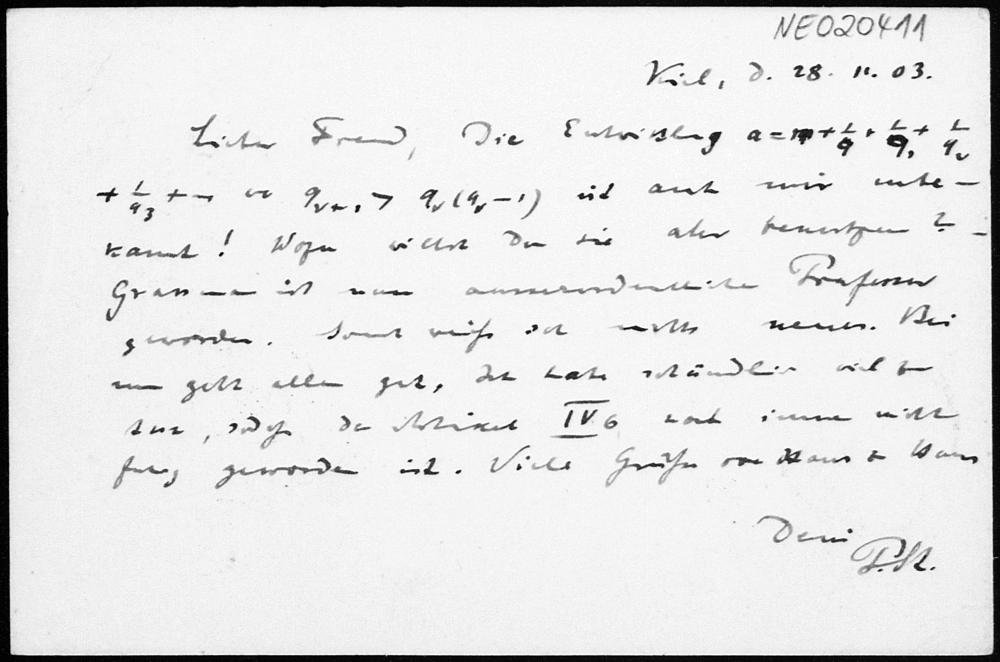 NE020411
Kiel, d. 28. 11. 03.
Lieber Freund, Die Entwicklung a = m + 1/q + 1/q₁ + 1/q₂
+ 1/q₃ + — wo qᵥ₊₁ > qᵥ(qᵥ−1) ist auch mir unbe-
kannt! Wozu willst Du sie aber benutzen? –
Grassmann ist nun ausserordentlicher Professor
geworden. Sonst weiß ich nichts neues. Bei
uns geht alles gut, Ich habe schändlich viel zu
tun, sodaß der Artikel IV 6 noch immer nicht
fertig geworden ist. Viele Grüße von Haus zu Haus
Dein
P. St.